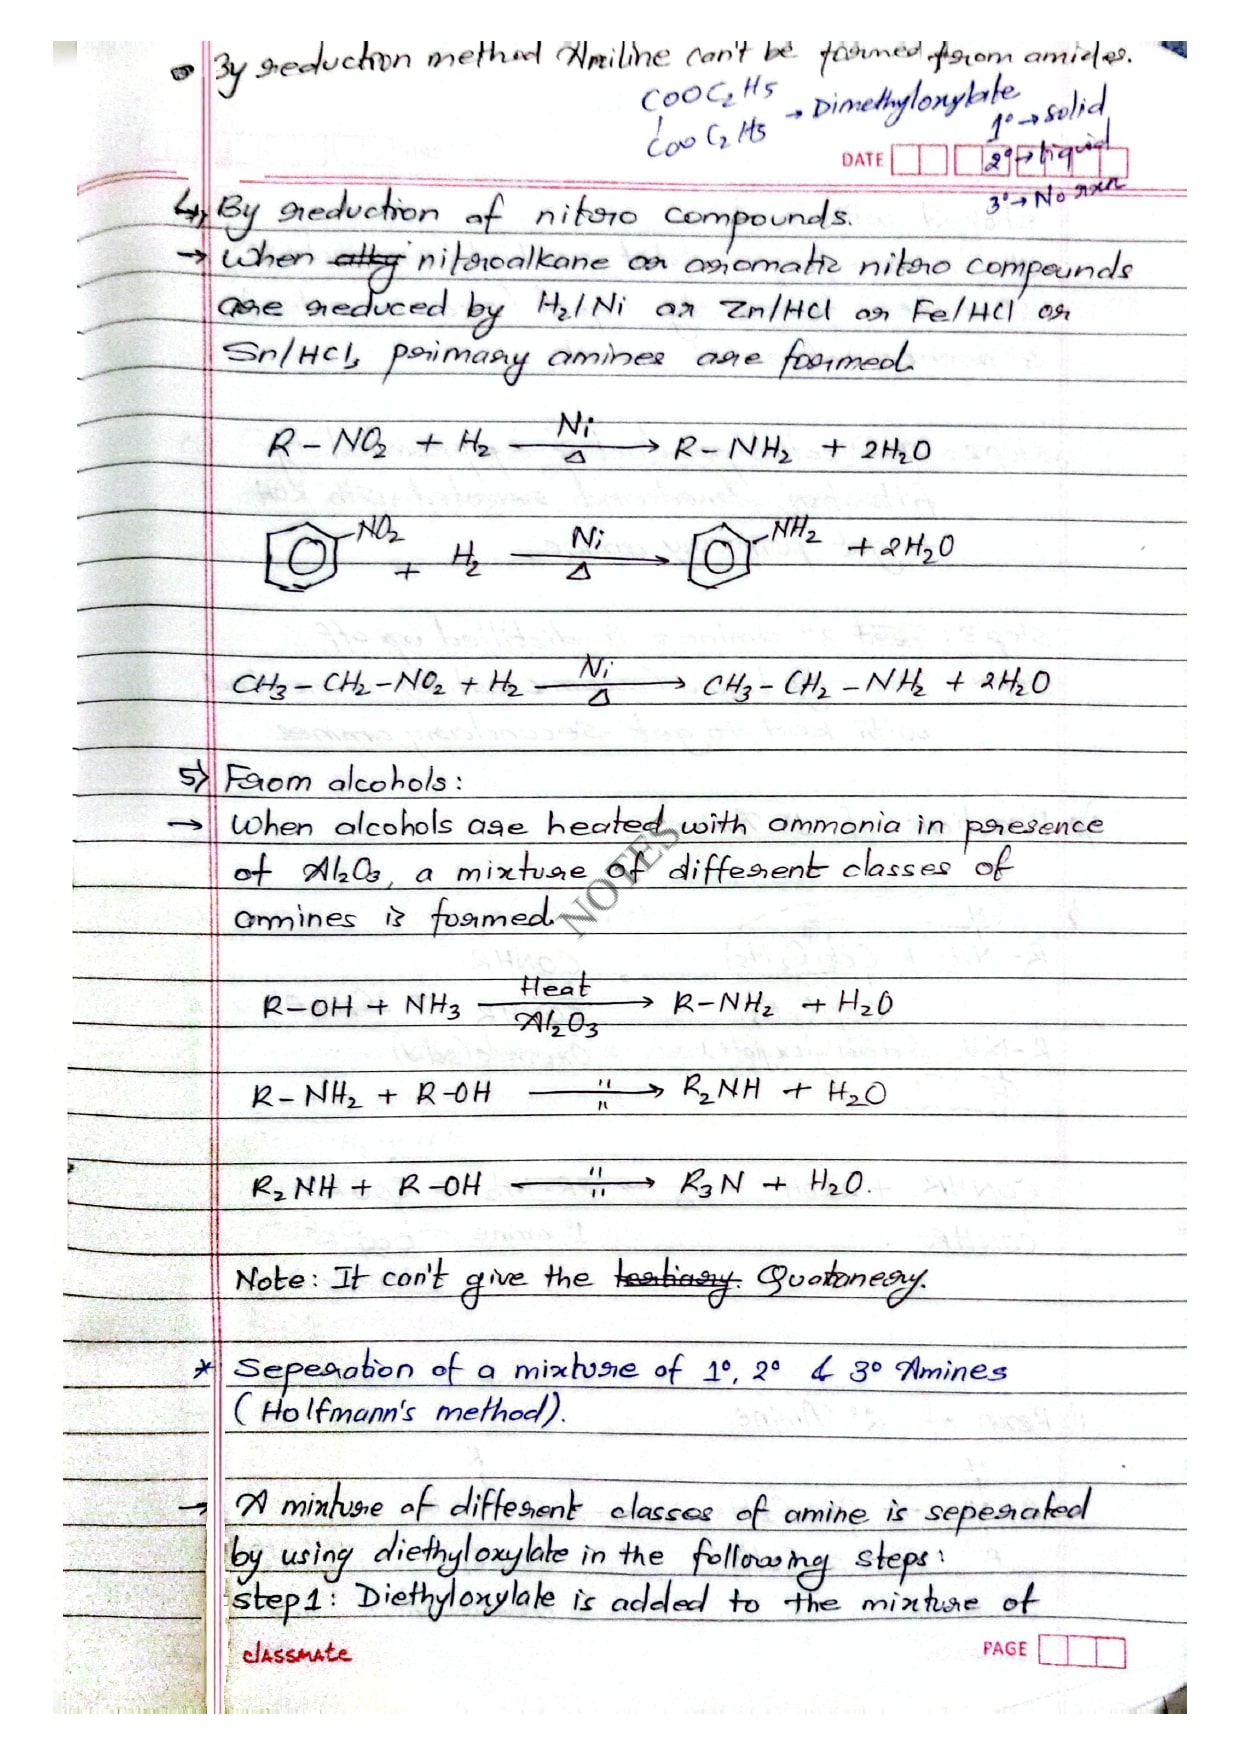 By reduction method Aniline can't be formed from amides.
COOC2H5
|
COOC2H5 → Dimethyloxylate
1° → solid
DATE
2° → liquid
3° → No rxn
4) By reduction of nitro compounds.
→ When alky nitroalkane or aromatic nitro compounds
are reduced by H2/Ni or Zn/HCl or Fe/HCl or
Sn/HCl, primary amines are formed.
R – NO2 + H2 —Ni/Δ→ R – NH2 + 2H2O
NO2 + H2 —Ni/Δ→ NH2 + 2H2O
CH3 – CH2 – NO2 + H2 —Ni/Δ→ CH3 – CH2 – NH2 + 2H2O
5) From alcohols:
→ When alcohols are heated with ammonia in presence
of Al2O3, a mixture of different classes of
amines is formed.
NOTES
R–OH + NH3 —Heat/Al2O3→ R–NH2 + H2O
R – NH2 + R–OH —"/"→ R2NH + H2O
R2NH + R–OH —"/"→ R3N + H2O.
Note: It can't give the tertiary. Quataneary.
* Seperation of a mixture of 1°, 2° & 3° Amines
(Holfmann's method).
→ A mixture of different classes of amine is seperated
by using diethyloxylate in the following steps:
step1: Diethyloxylate is added to the mixture of
classmate
PAGE